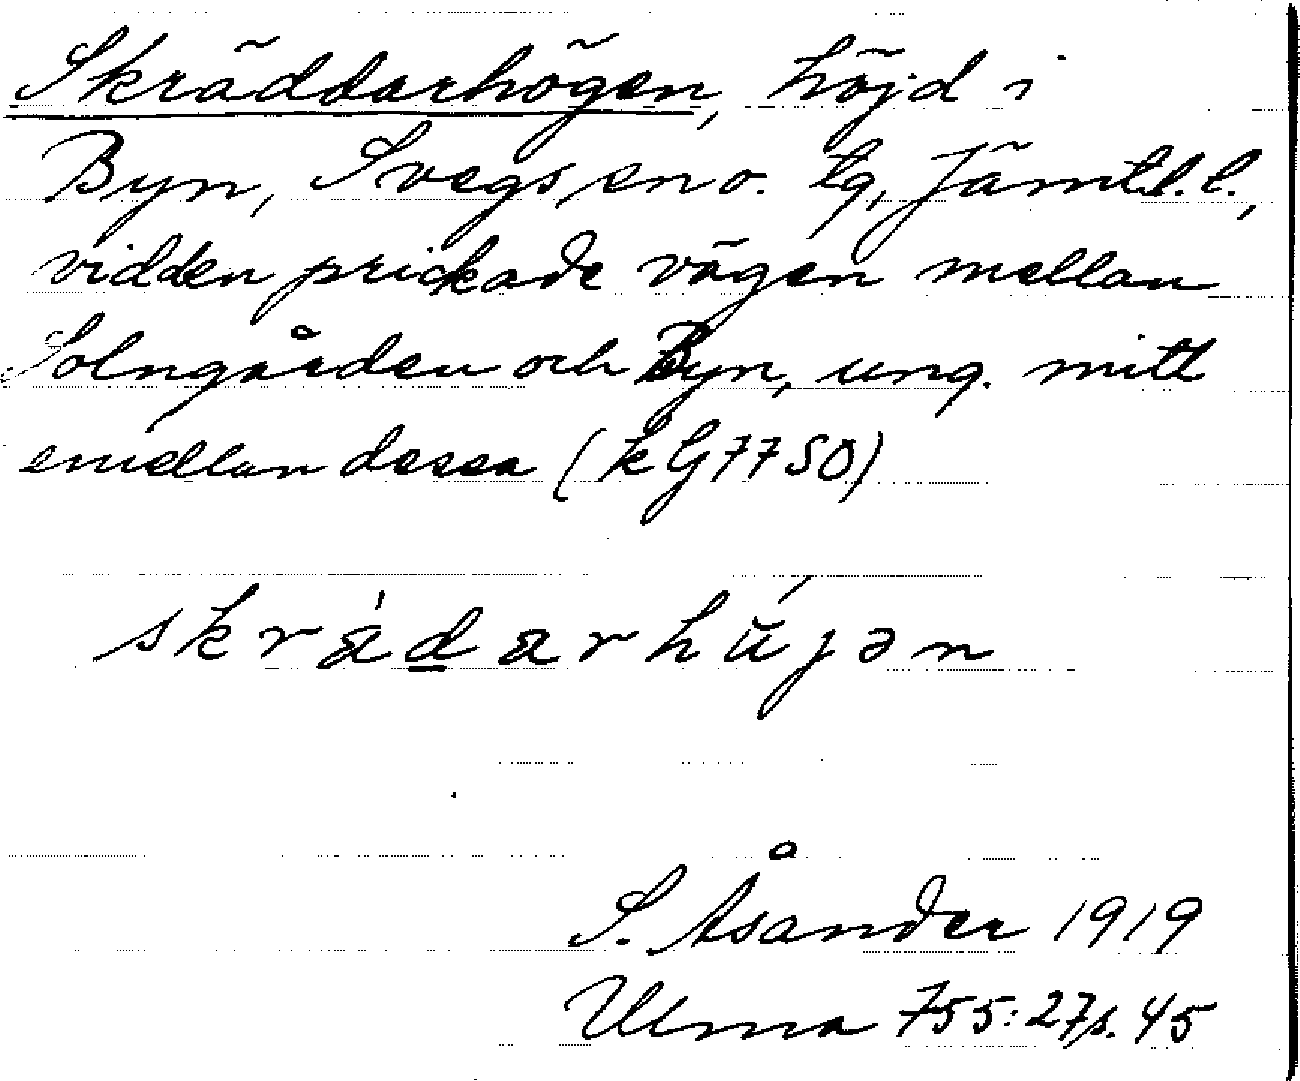 Skräddarhögen, höjd i
Byn, Svegs sn o. tg, Jämtl. l.,
vid den prickade vägen mellan
Solngården och Byn, ung. mitt
emellan dessa (k G77SO)
skrädarhújən
S. Åsander 1919
Ulma 755:27 s. 45